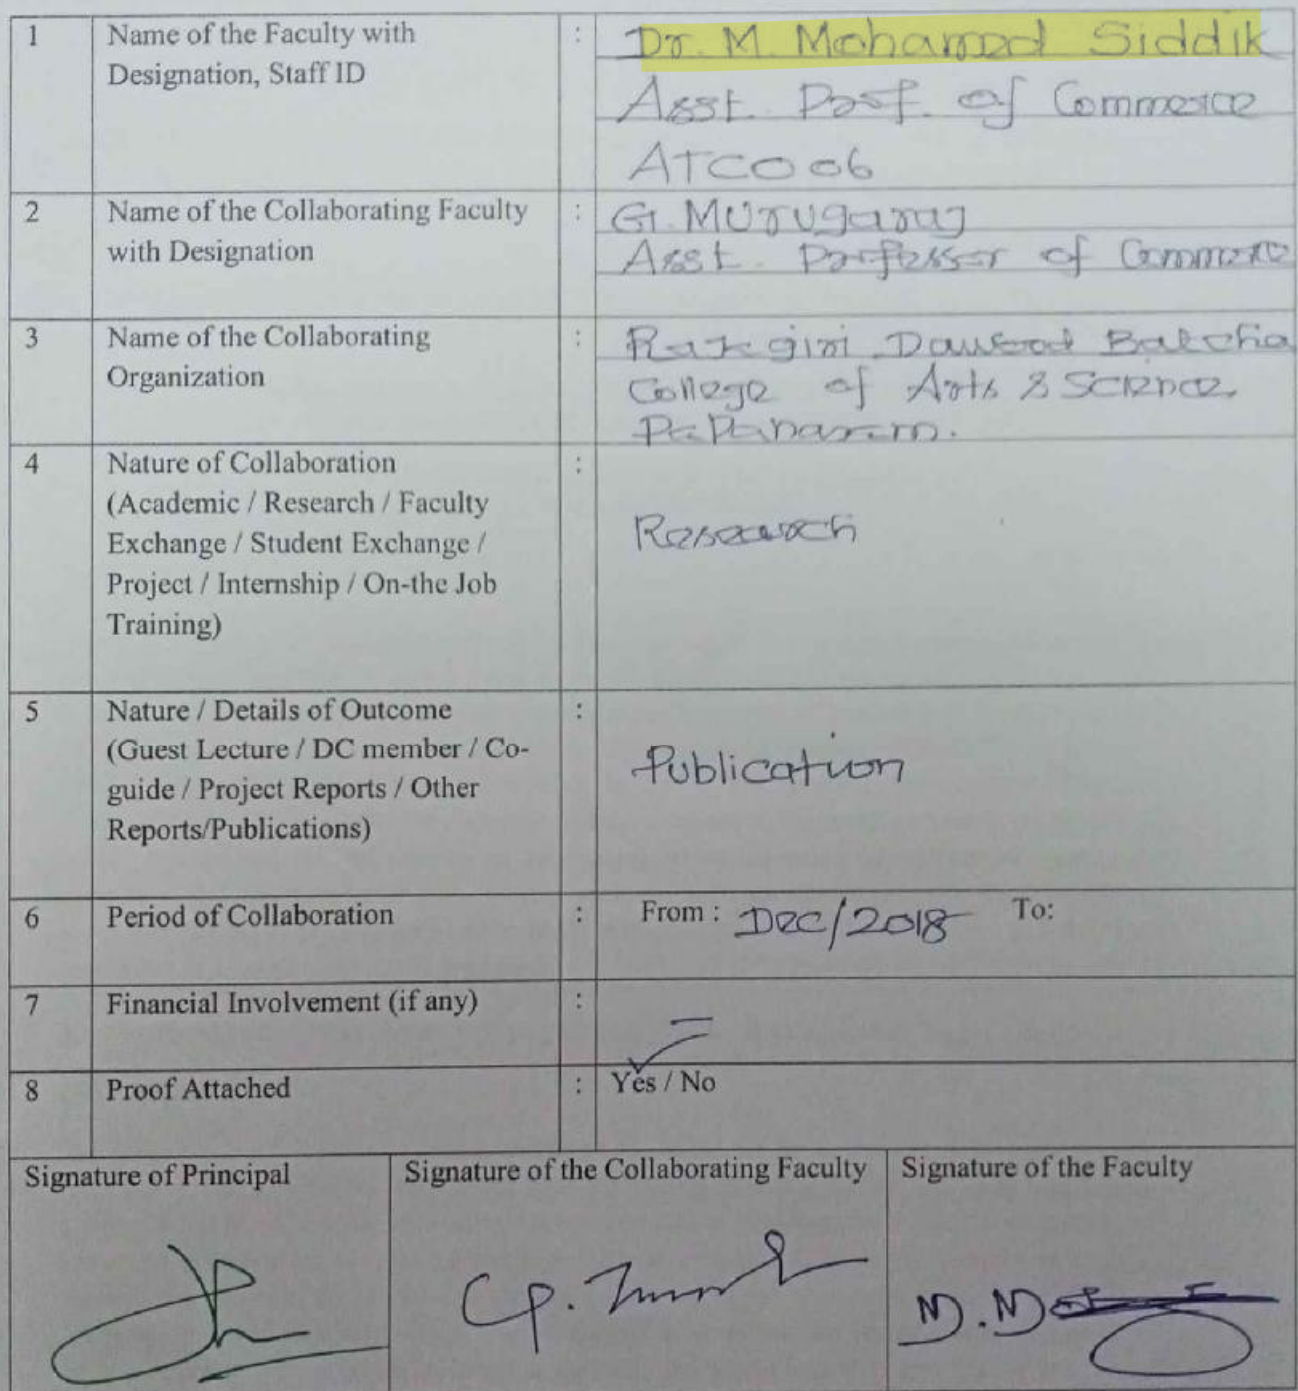 1 Name of the Faculty with : Dr. M. Mohamed Siddik
Designation, Staff ID Asst. Prof. of Commerce
ATCO06
2 Name of the Collaborating Faculty : G. Murugaraj
with Designation Asst. Professor of Commerce
3 Name of the Collaborating : Dawood Batcha
Organization College of Arts & Science,
Papanasam.
4 Nature of Collaboration :
(Academic / Research / Faculty
Exchange / Student Exchange / Research
Project / Internship / On-the Job
Training)
5 Nature / Details of Outcome :
(Guest Lecture / DC member / Co-
guide / Project Reports / Other Publication
Reports/Publications)
6 Period of Collaboration : From : Dec/2018 To:
7 Financial Involvement (if any) :
8 Proof Attached : Yes / No
Signature of Principal Signature of the Collaborating Faculty Signature of the Faculty